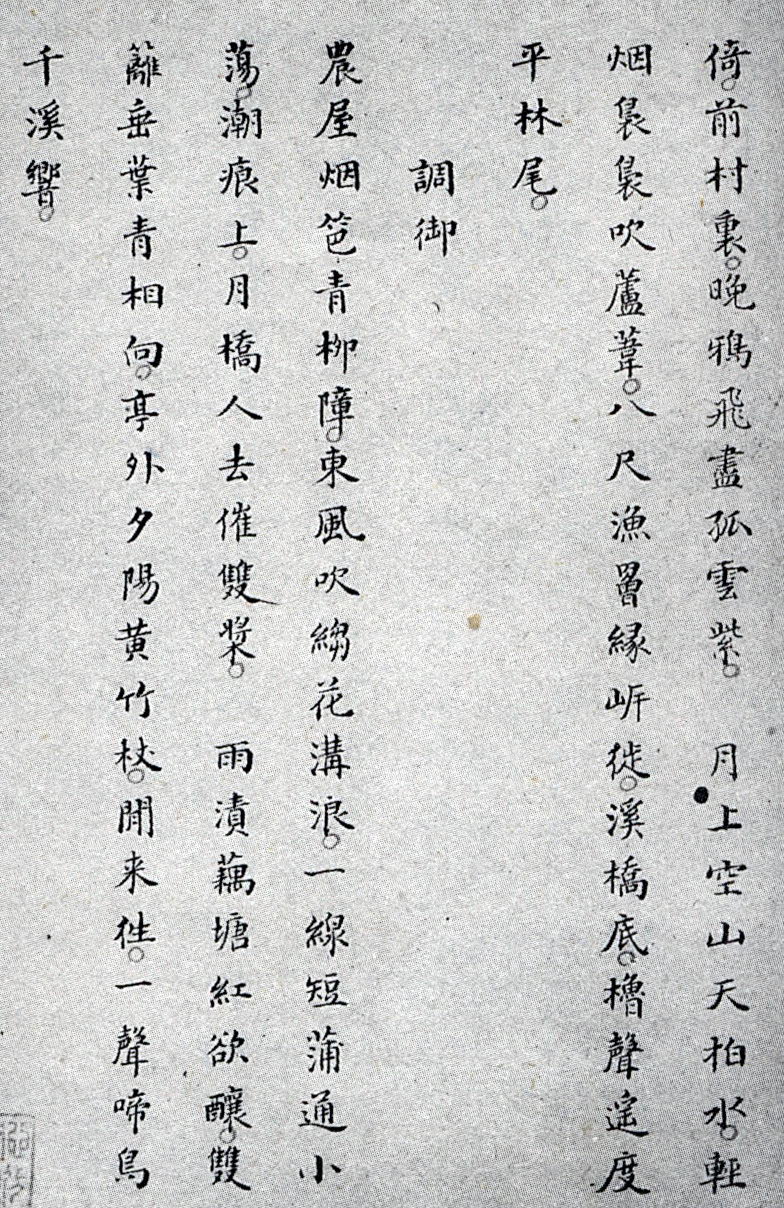 倚前村裏。晚鴉飛盡孤雲紫。　月上空山天拍水。輕
烟裊裊吹蘆葦。八尺漁罾緣岍徙。溪橋底。櫓聲遙度
平林尾。
調御
農屋烟笆青柳障。東風吹縐花溝浪。一線短蒲通小
蕩。潮痕上。月橋人去催雙槳。　雨漬藕塘紅欲釀。雙
籬垂葉青相向。亭外夕陽黃竹杖。閒来徃。一聲啼鳥
千溪響。